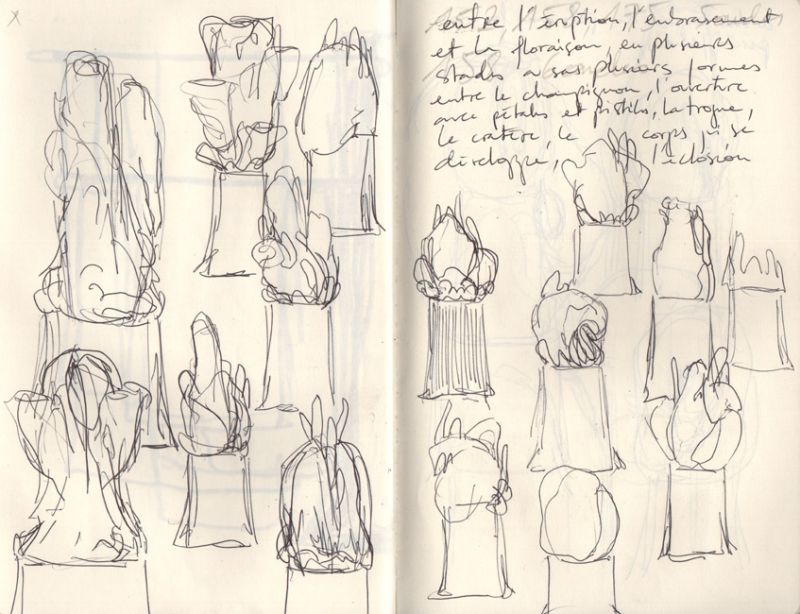 entre l'éruption, l'embrasement
et la floraison, en plusieurs
stades a ses plusieurs formes
entre le champignon, l'ouverture
avec pétales et pistils, la trogne,
le cratère, le corps qui se
développe, l'éclosion